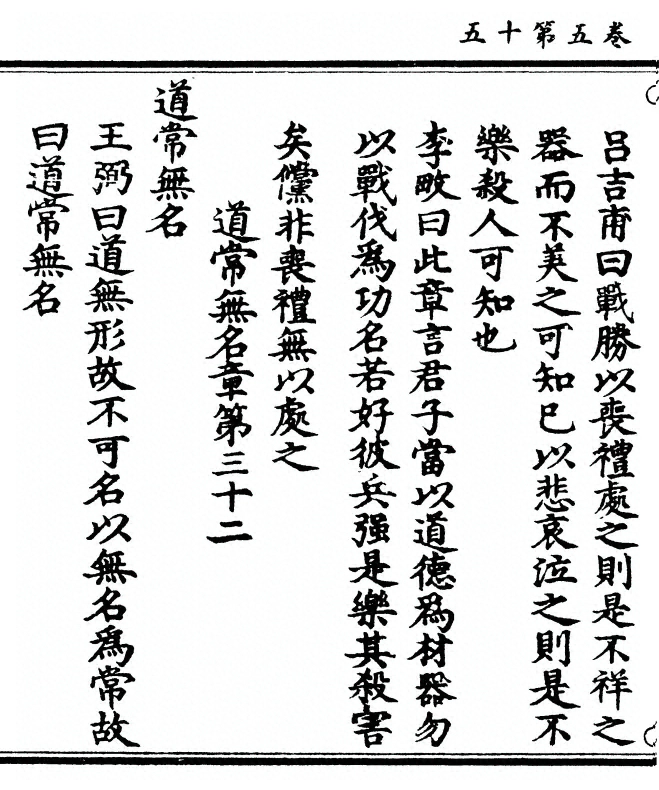 卷五第十五
吕吉甫曰戰勝以喪禮處之則是不祥之
器而不美之可知已以悲哀泣之則是不
樂殺人可知也
李畋曰此章言君子當以道德爲材器勿
以戰伐爲功名若好彼兵强是樂其殺害
矣儻非喪禮無以處之
道常無名章第三十二
道常無名
王弼曰道無形故不可名以無名爲常故
曰道常無名